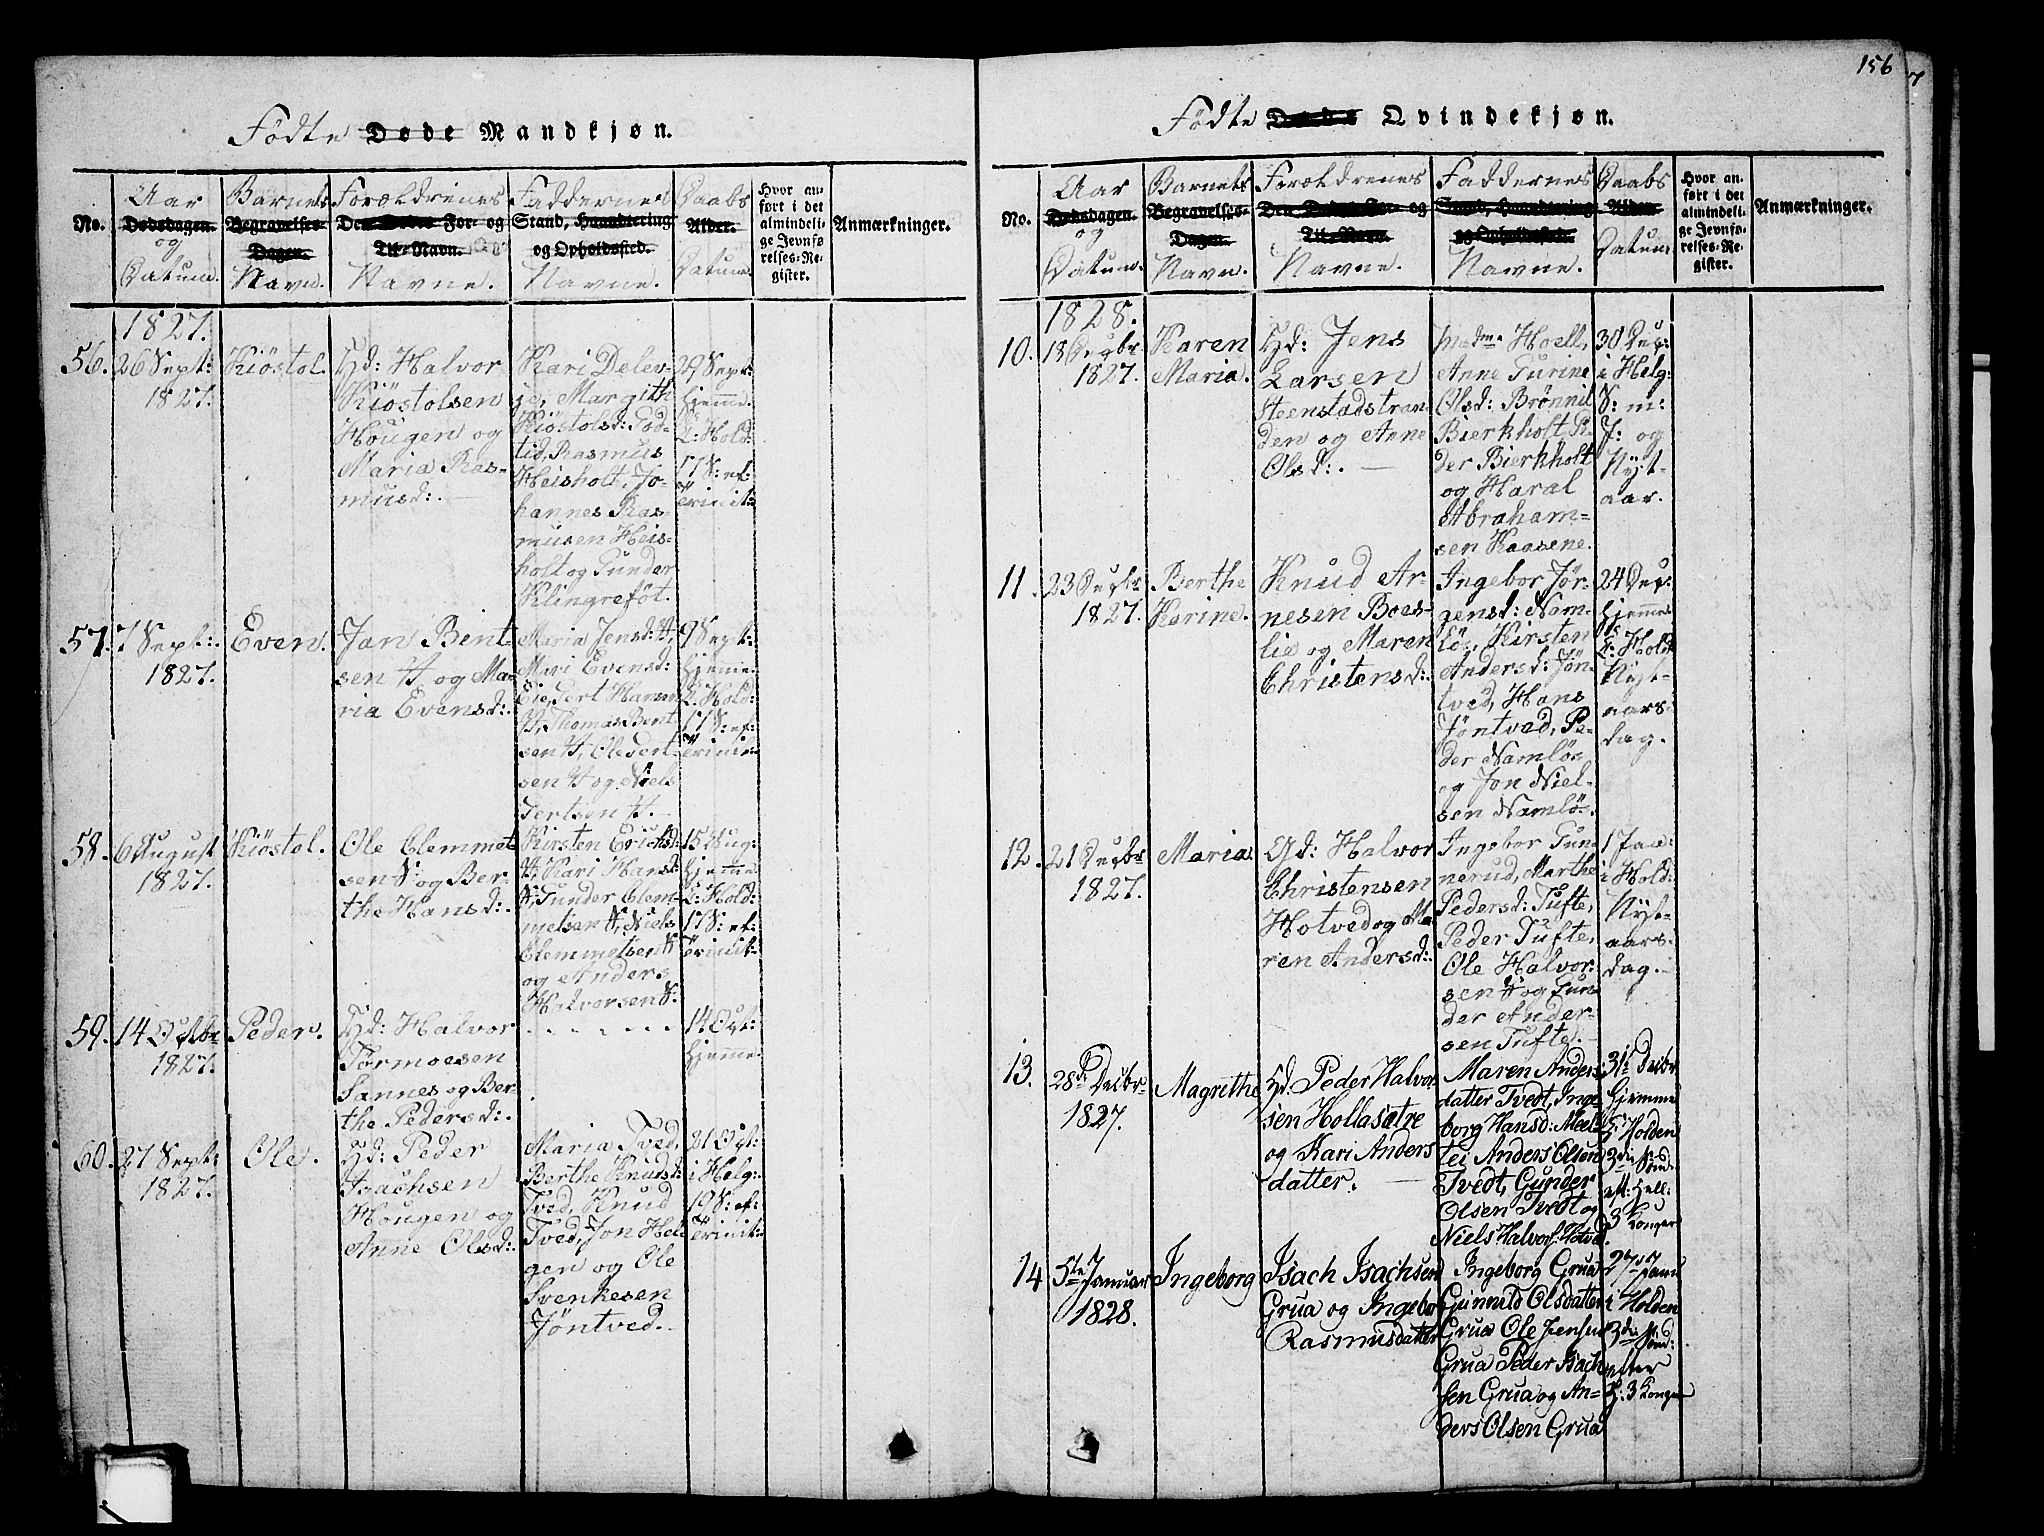 156
7
Födte Døde Mandkjøn.
No.
Aar
Dødsdagen.
og
Datum.
Barnets
Begravelses-
Dagen.
Navn.
Forældrenes
Den Dødes For- og
Til-Navn.
Navne.
Faddernes
Stand, Haandtering
og Opholdssted.
Navne.
Daabs
Alder.
Datum.
Hvor an-
ført i det
almindeli-
ge Jevnfø
relses-Re-
gister.
Anmærkninger.
1827.
56. 26 Sept:
1827.
Kiöstol.
Gd: Halvor
Kiöstolsen
Hougen og
Maria Ras-
musd:.
Kari Delev-
je, Margith
Kiöstolsd: God-
tid, Rasmus
Heisholt, Jo-
hannes Ras-
musen Heis-
holt og Gunder
Klingrefot.
29 Sept:
hjemme.
i: Hold:
17 S: ef:
trinit:
57. 7 Sept:
1827.
Even.
Jan Bent-
sen H og Ma-
ria Evensd:.
Maria Jensd: H,
Mari Evensd:
Eie, Gert Hansen
H, Thomas Bent
sen H, Ole Gert-
sen H og Niels
Gertsen H.
9 Sept:
hjemme.
i: Hold:
17 S: ef:
trinit:
58. 6 August
1827.
Kiöstol.
Ole Clemmet
sen S og Ber-
the Hansd:.
Kirsten Erichsd:
H, Kari Hansd:
S, Gunder Clem-
metsen S, Niels
Clemmetsen S
og Anders
Halvorsen S:
15 Aug:
hjemme.
i: Hold:
17 S: ef:
trinit:
59. 14 Octbr
1827.
Peder.
Gd: Halvor
Tormoesen
Sannes og Ber-
the Pedersd:.
14 Oct:
hjemme.
60. 27 Sept:
1827.
Ole.
Gd: Peder
Isachsen
Hougen og
Anne Olsd:.
Maria Tved,
Berthe Knudsd:
Tved, Knud
Tved, Jon Hel-
gen og Ole
Svenkesen
Jöntved.
21 Oct:
i Helg:
19 S: ef:
trinit:
Födte Døde Qvindekjøn.
No.
Aar
Dødsdagen.
og
Datum.
Barnets
Begravelses-
Dagen.
Navn.
Forældrenes
Den Dødes For- og
Til-Navn.
Navne.
Faddernes
Stand, Haandtering
og Opholdssted.
Navne.
Daabs
Alder.
Datum
Hvor an-
ført i det
almindeli-
ge Jevnfø-
relses-Re-
gister.
Anmærkninger.
1828.
10. 18 Decbr
1827.
Karen
Maria.
Gd: Jens
Larsen
Steenstadstran
den og Anne
Olsd:.
Madme Hoell,
Anne Gurine
Olsd: Brönnil
Bierkholt, Pe
der Bierkholt
og Haral
Abraham-
sen Kaasene.
30 Dec:
i Helg:
S: m:
J: og
Nyt-
aar.
11. 23 Decbr
1827.
Berthe
Karine.
Knud Ar-
nesen Boes-
lie og Maren
Christensd:.
Ingebor Jör-
gensd: Nam-
lös, Kirsten
Andersd: Jön-
tved, Hans
Jöntved, Pe-
der Namlös
og Jon Niel-
sen Namlös.
24 Dec:
hjemme
i: Hold:
Nyt-
aars-
dag.
12. 21 Decbr
1827.
Maria.
Gd: Halvor
Christensen
Hotved og Ma
ren Andersd:.
Ingebor Gun-
nerud, Marthe
Pedersd: Tufte,
Peder Tufte,
Ole Halvor-
sen H og Gun-
der Ander-
sen Tufte.
1 Jan:
i Hold:
Nyt-
aars-
dag.
13. 28de Decbr
1827.
Magrithe
Gd. Peder Halvor
sen Hollasætre
og Kari Anders
datter.
Maren Anders
datter Tvedt, Inge
borg Hansd: Meel-
tei Anders Olsen
Tvedt, Gunder
Olsen Tvedt og
Niels Halvors: Hotved.
31te Decbr
hjemme
i Holden
3die Sönd.
eft: Hell:
3 Konger
14 5te Januar
1828.
Ingeborg
Isach Isachsen
Grua og Ingebor
Rasmusdatter
Ingeborg Grua
Gunnild Olsdatter
Grua Ole Jensen
Grua Peder Isach
sen Grua og An-
ders Olsen Grua
27 Janu
i Holden
3die Sönd:
efter
H: 3 Konger